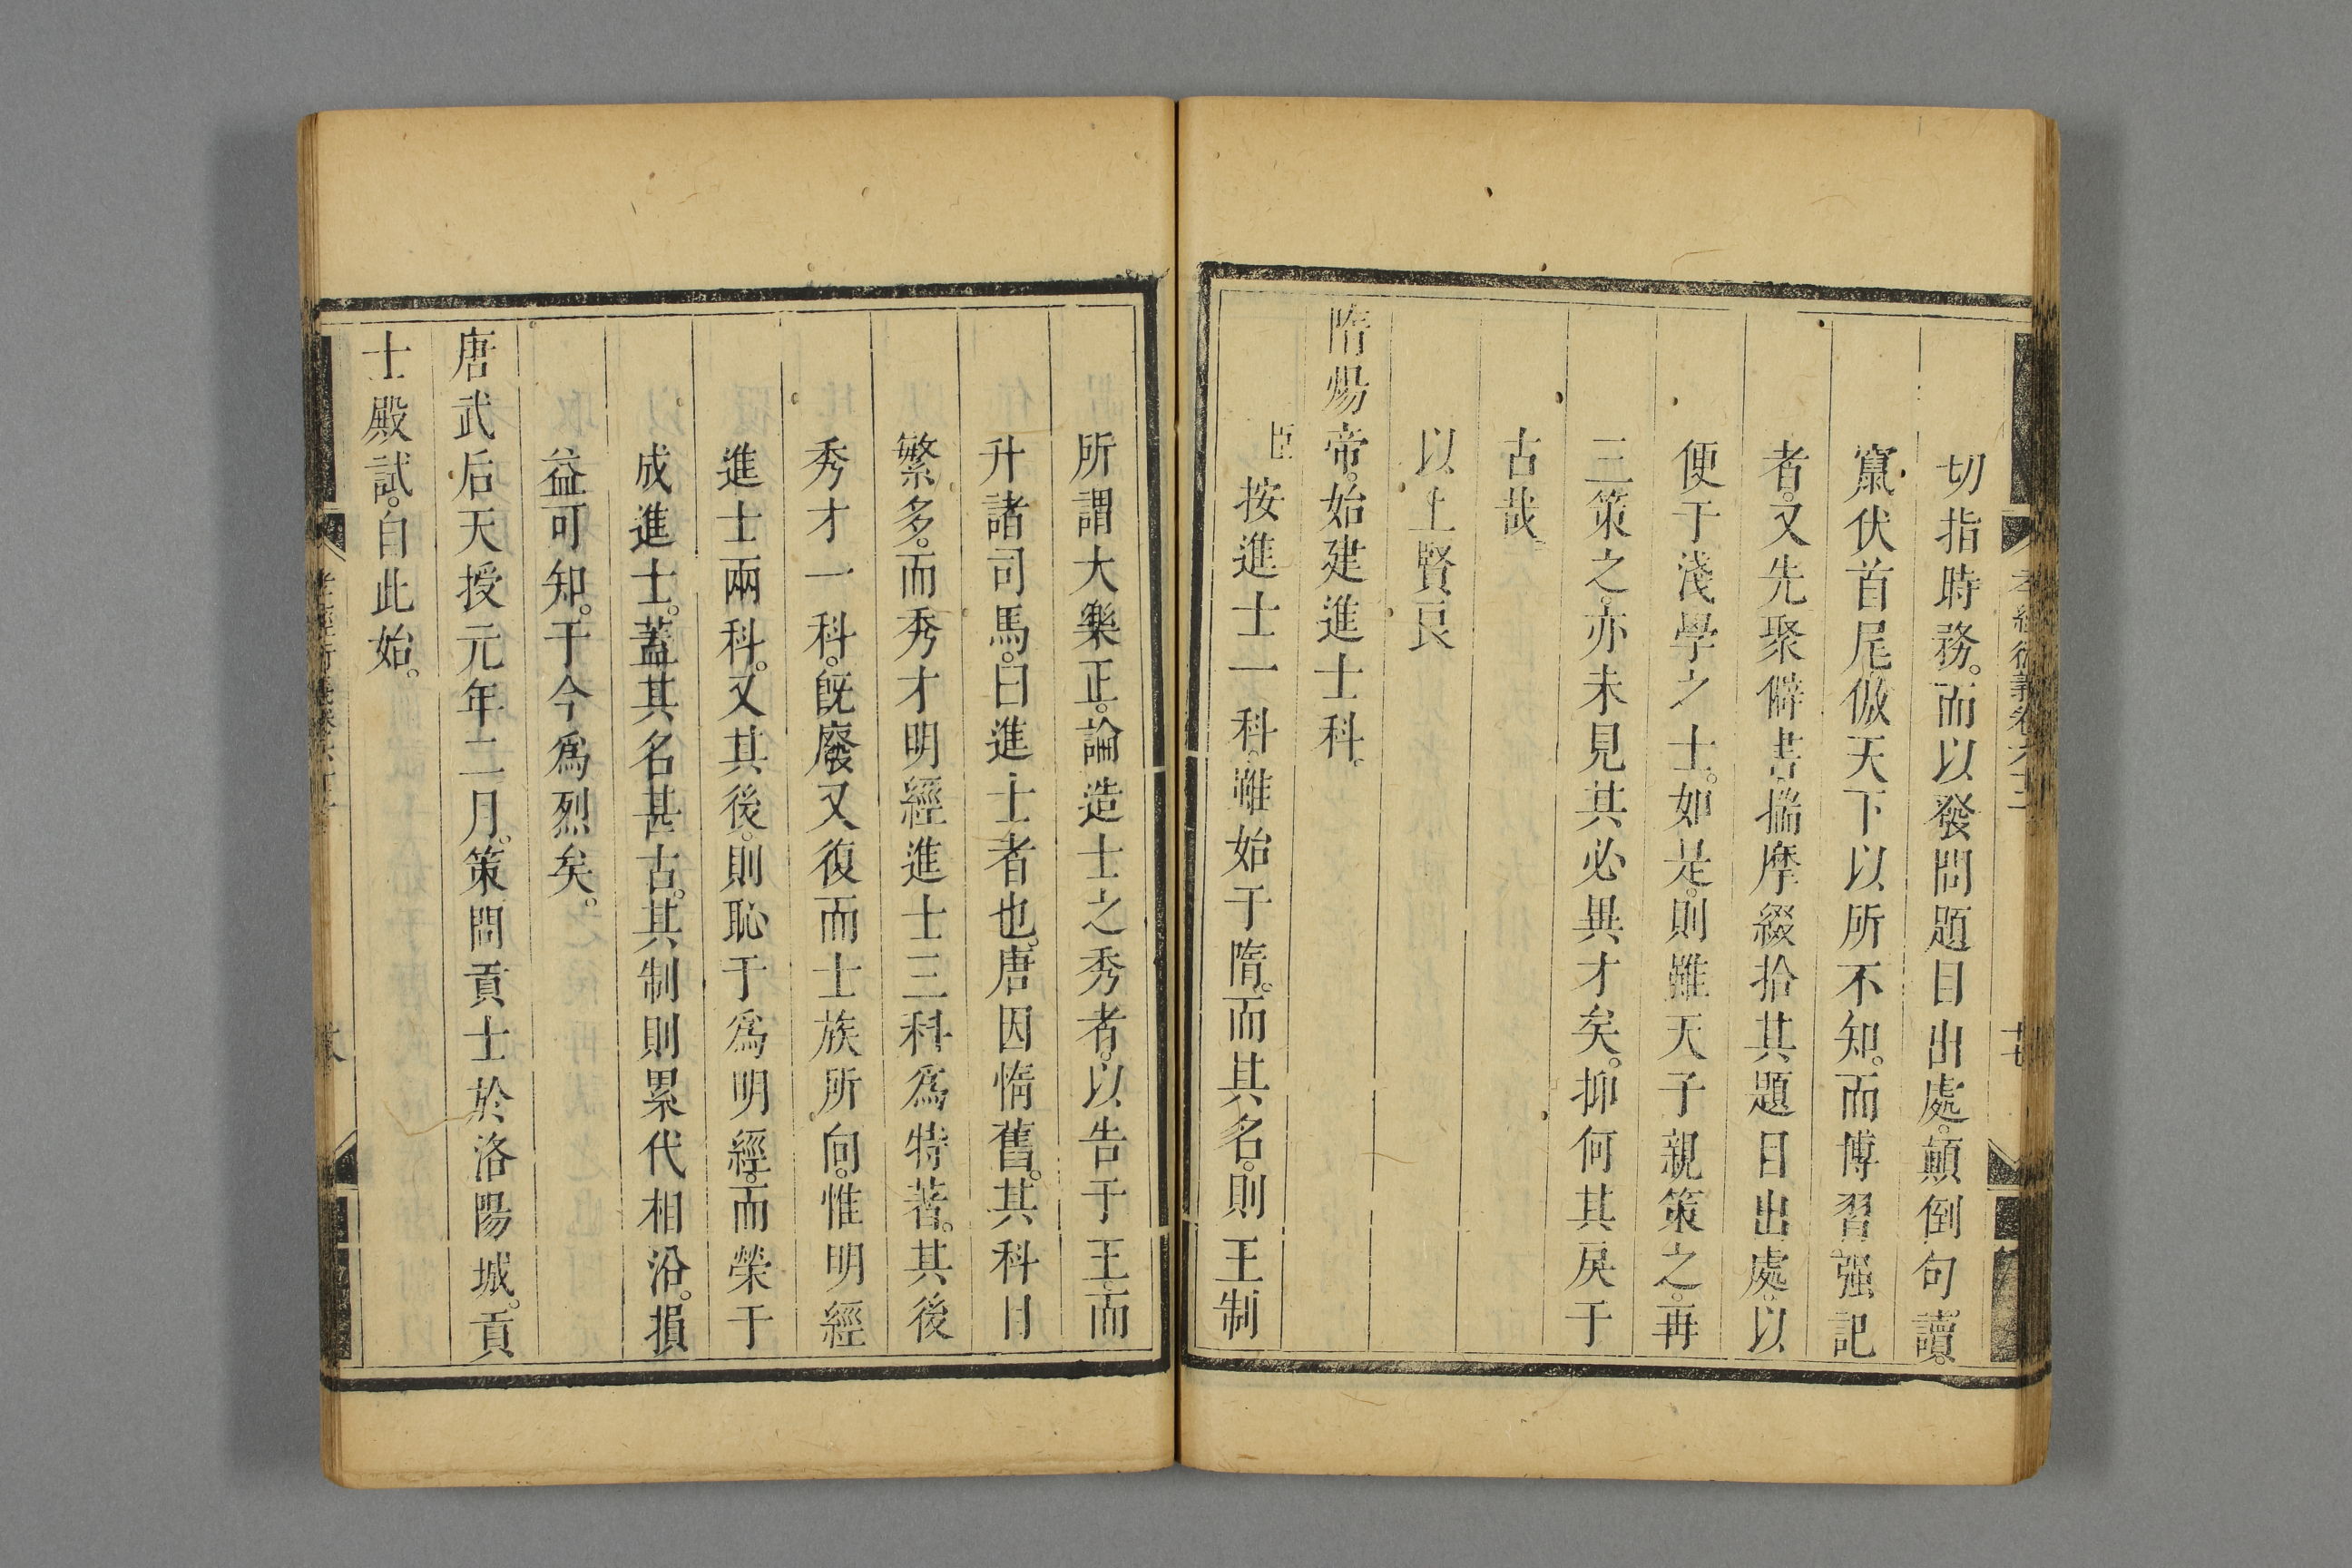 切指時務。而以發問題目出處。顛倒句讀。
竄伏首尾。倣天下以所不知。而博習强記
者。又先聚僻書揣摩綴拾其題目出處。以
便于淺學之士。如是。則雖天子親策之。再
三策之。亦未見其必異才矣。抑何其戾于
古哉。
以上賢良
隋煬帝。始建進士科。
臣按進士一科。雖始于隋。而其名。則王制
所謂大樂正。論造士之秀者。以告于王。而
升諸司馬。曰進士者也。唐因惰舊。其科目
繁多。而秀才明經進士三科。爲特著。其後
秀才一科。旣廢又復而士族所向。惟明經
進士兩科。又其後。則恥于爲明經。而榮于
成進士。蓋其名甚古。其制則累代相沿。損
益可知。于今爲烈矣。
唐武后天授元年二月。策問貢士於洛陽城。貢
士殿試。自此始。